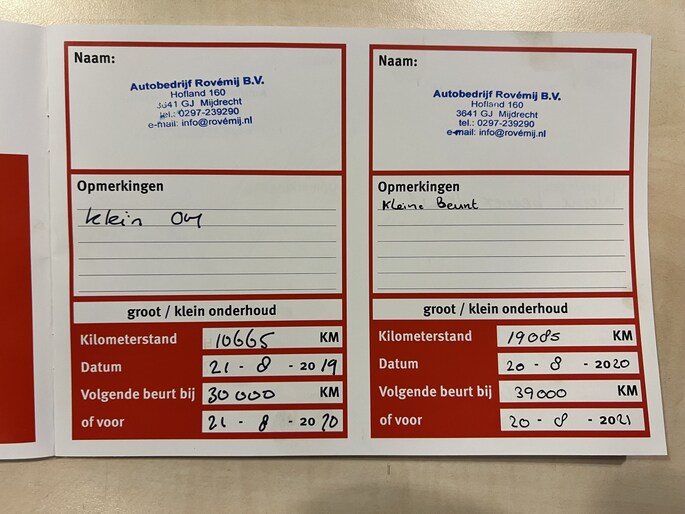 Naam:
Autobedrijf Rovémij B.V.
Hofland 160
3641 GJ Mijdrecht
tel.: 0297-239290
e-mail: info@rovémij.nl
Opmerkingen
klein
groot / klein onderhoud
Kilometerstand 10665 KM
Datum 21 - 8 - 2019
Volgende beurt bij 30000 KM
of voor 21 - 8 - 2020
Naam:
Autobedrijf Rovémij B.V.
Hofland 160
3641 GJ Mijdrecht
tel.: 0297-239290
e-mail: info@rovémij.nl
Opmerkingen
Kleine Beurt
groot / klein onderhoud
Kilometerstand 19085 KM
Datum 20 - 8 - 2020
Volgende beurt bij 39000 KM
of voor 20 - 8 - 2021